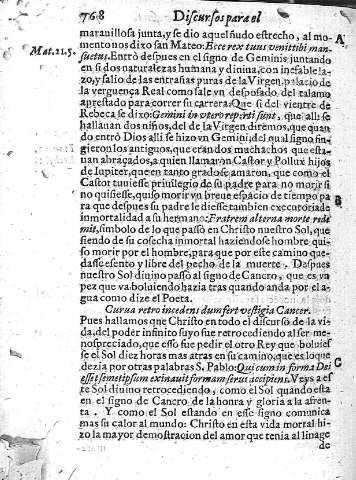 768 Discursos para el
marauillosa junta, y se dio aquel ñudo estrecho, al mo- A
mento nos dixo san Mateo: Ecce rex tuus venit tibi man
Mat. 21.5. suetus. Entrò despues en el signo de Geminis juntando
en si dos naturalezas humana y diuina, con inefable la-
zo, y salio de las entrañas puras de la Virgen, palacio de
la verguença Real como sale vn desposado del talamo
aprestado para correr su carrera. Que si del vientre de
Rebeca se dixo: Gemini in vtero reperti sunt, que alli se
hallauan dos niños, del de la Virgen diremos, que quan
do entrò Dios alli se hizo vn Gemini, del qual signo fin-
gieron los antiguos, que eran dos muchachos que esta-
uan abraçados, a quien llamaron Castor y Pollux hijos
de Iupiter, que en tanto grado se amaron, que como el
Castor tuuiesse priuilegio de su padre para no morir si
no quisiesse, quiso morir vn breue espacio de tiempo pa B
ra que despues su padre le diesse tambien executoria de
inmortalidad a su hermano: Fratrem alterna morte rede
mit, simbolo de lo que passò en Christo nuestro Sol, que
siendo de su cosecha inmortal haziendose hombre qui-
so morir por el hombre, para que por este camino que-
dasse esento y libre del pecho de la muerte. Despues
nuestro Sol diuino passò al signo de Cancro, que es vn
pez que va boluiendo hazia tras quando anda por el a-
gua como dize el Poeta.
Curua retro incedens dum fert vestigia Cancer. C
Pues hallamos que Christo en todo el discurso de la vi-
da, del poder infinito suyo fue retrocediendo al ser me-
nospreciado, que esso fue pedir el otro Rey que boluies
se el Sol diez horas mas atras en su camino, que es lo que
dezia por otras palabras S. Pablo: Qui cum in forma Dei
esset semetipsum exinauit formam serui accipiens. Veys a es-
te Sol diuino retrocediendo, como el Sol quando està
en el signo de Cancro de la honra y gloria a la afren-
ta. Y como el Sol estando en esse signo comunica
mas su calor al mundo: Christo en esta vida mortal hi-
zo la mayor demostracion del amor que tenia al linage
de